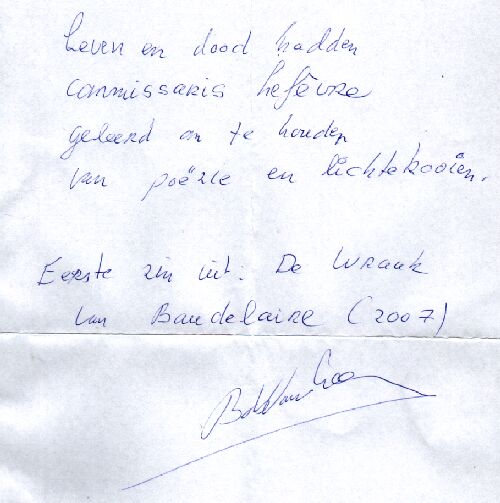 Leven en dood hadden
commissaris Lefèvre
geleerd om te houden
van poëzie en lichtekooien.
Eerste zin uit: De Wraak
van Baudelaire (2007)
Bob Van